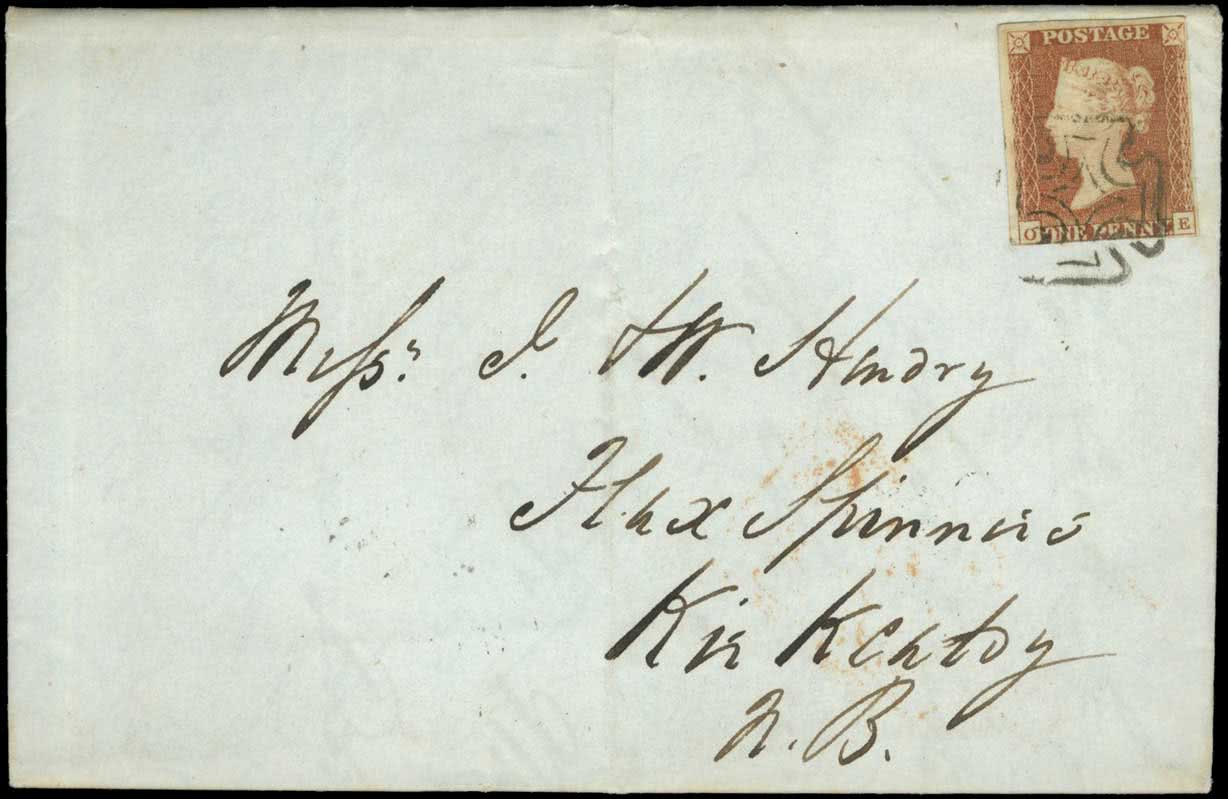 POSTAGE
O ONE PENNY E
Messrs. J. & W. Hendry
Flax Spinners
Kir Kcaldy
N. B.